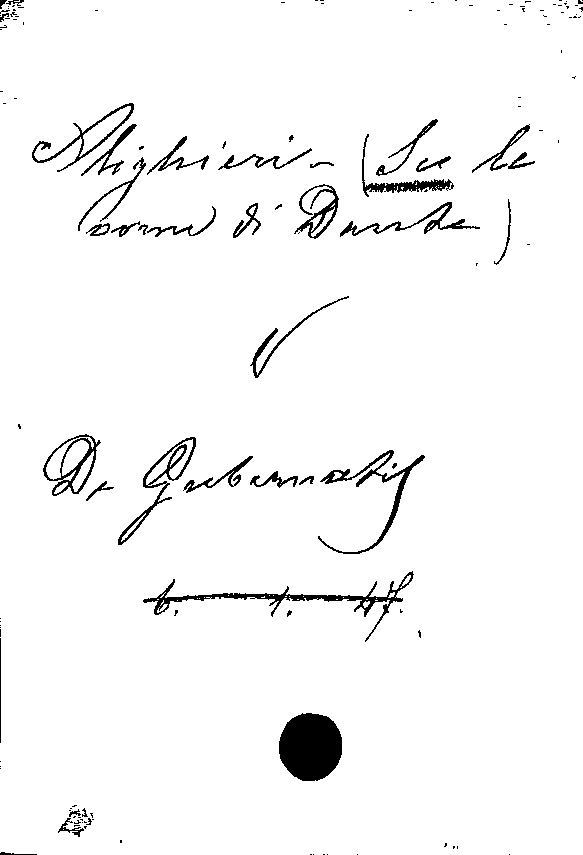 Alighieri - (Su le
orme di Dante)
De Gubernatis
6. 1. 47.